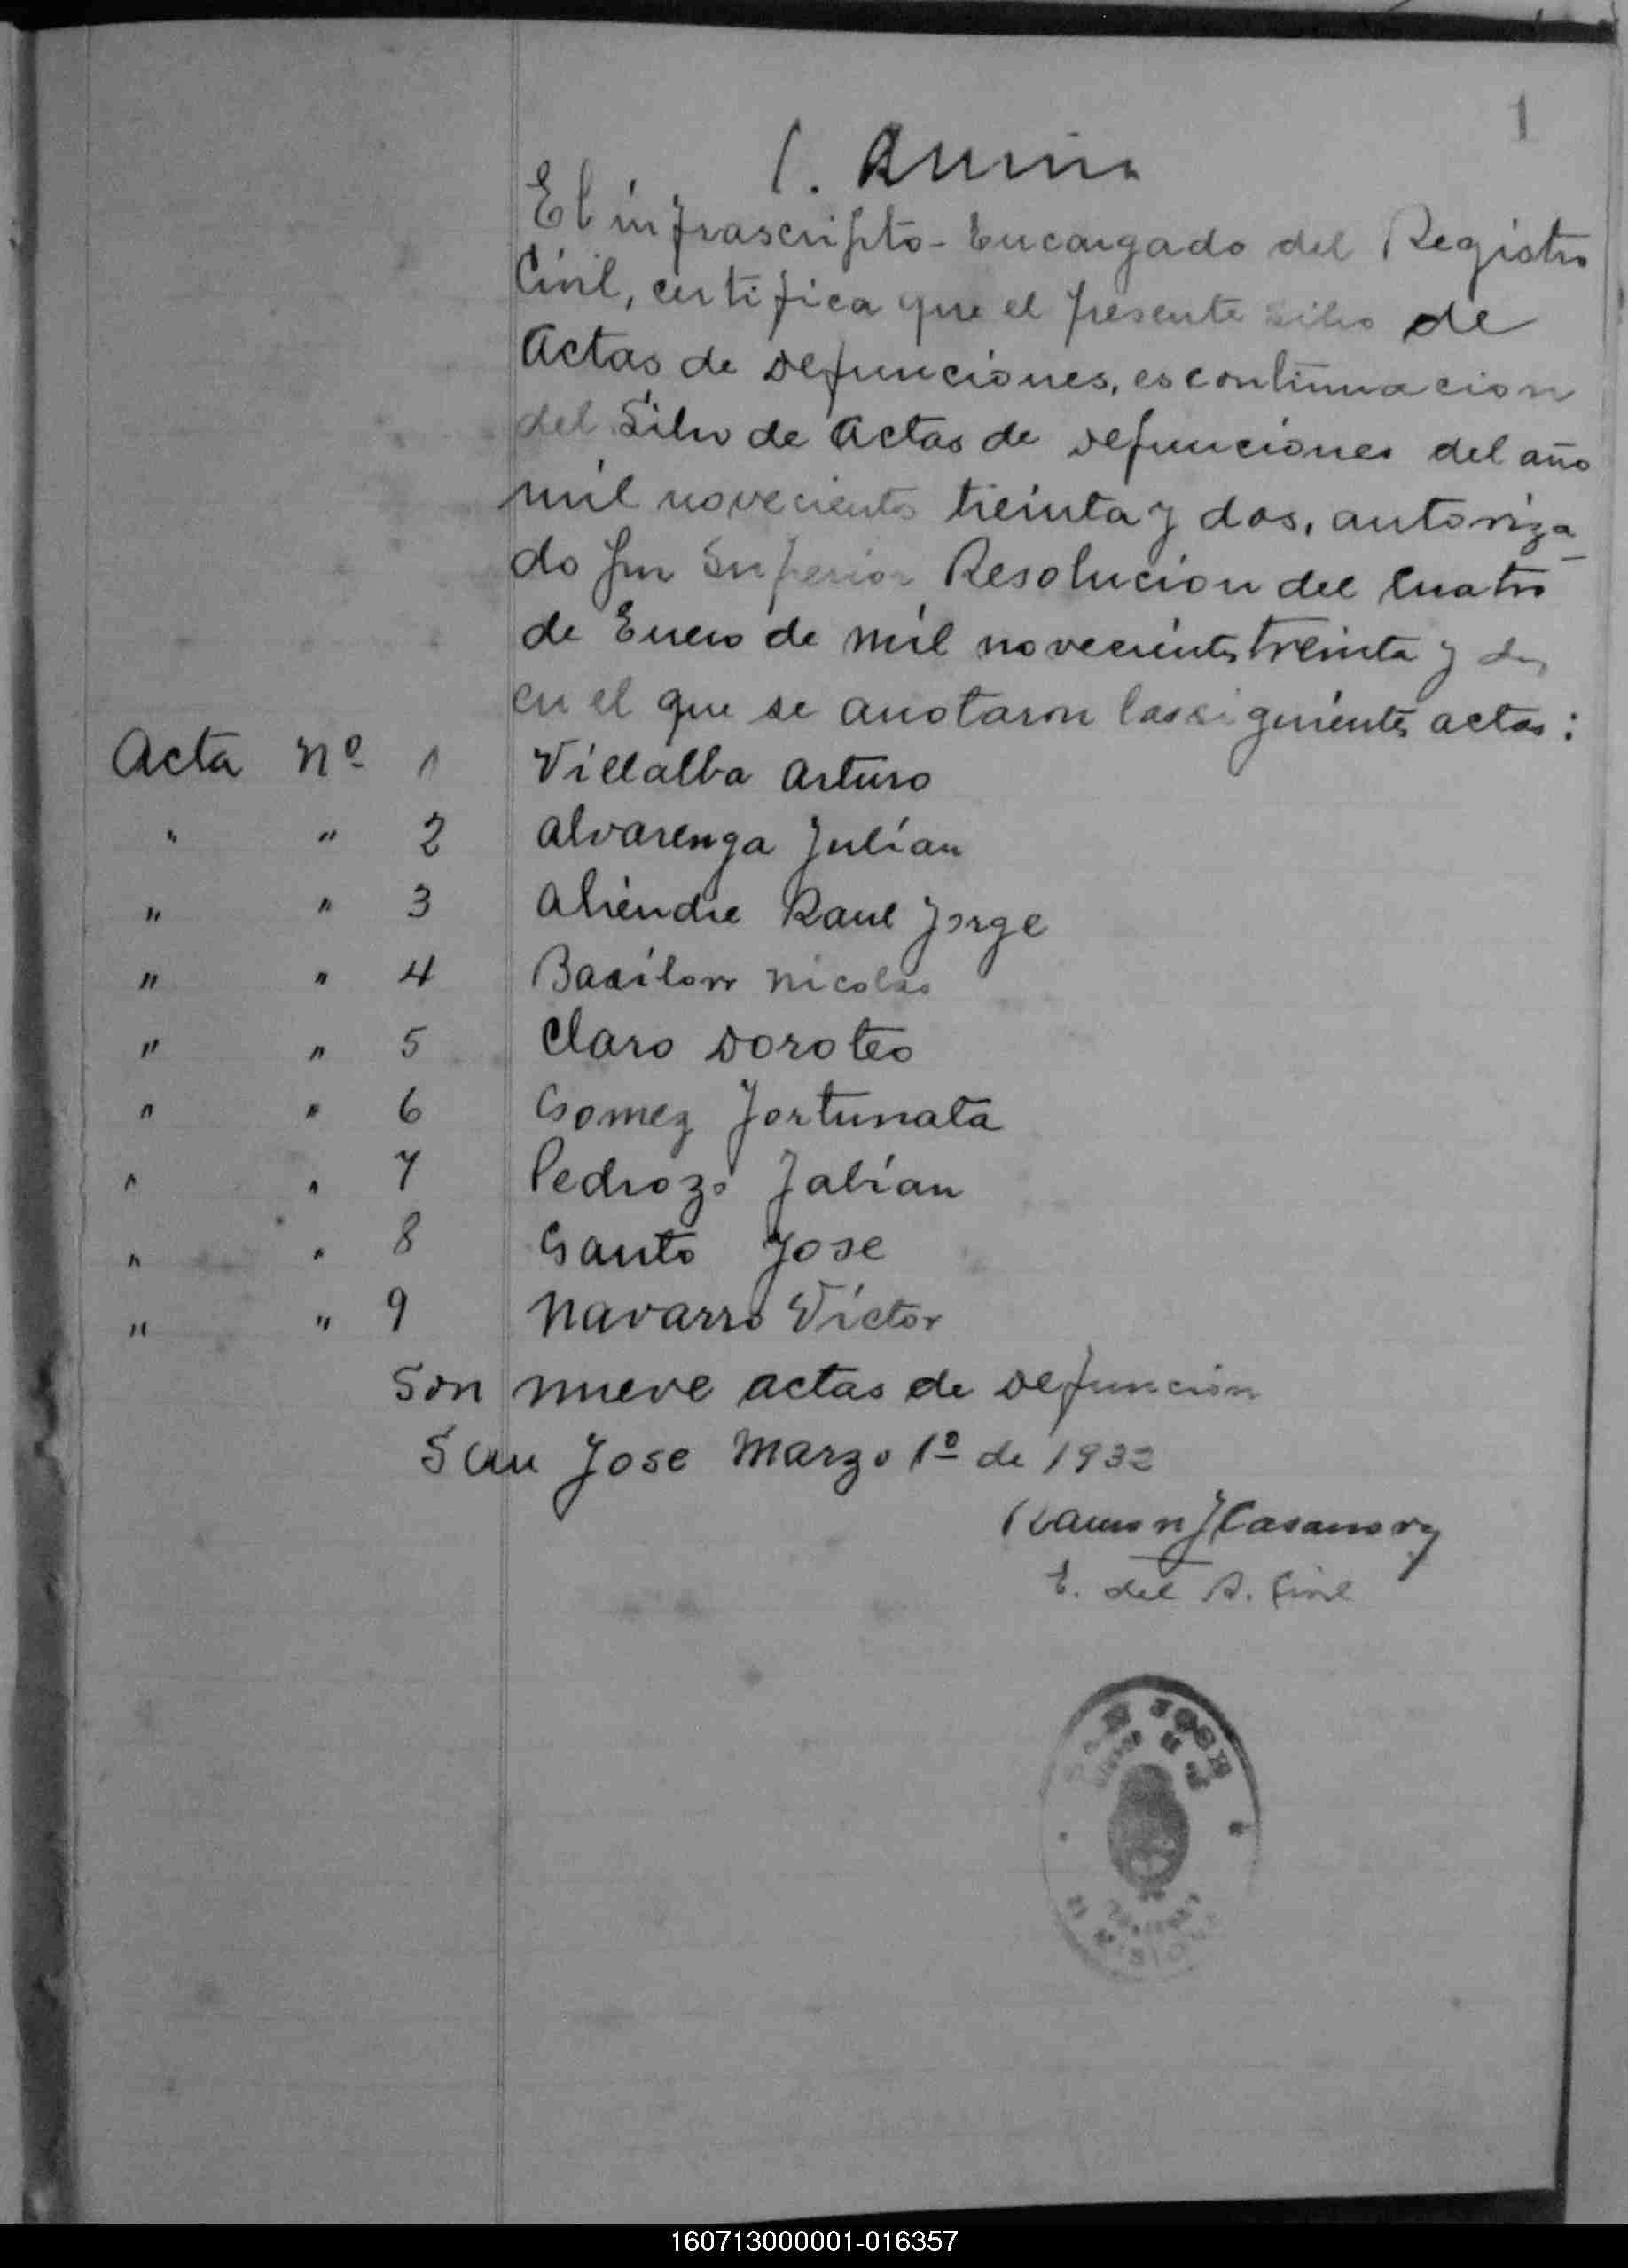 1
El infrascripto - Encargado del Registro
Civil, certifica que el presente Libro de
Actas de Defunciones, es continuacion
del Libro de Actas de Defunciones del año
mil novecientos treinta y dos, autoriza
do por Superior Resolucion del Cuatro
de Enero de mil novecientos treinta y dos
en el que se anotaron las siguientes actas:
Acta Nº 1 Villalba Arturo
" " 2 Alvarenga Julián
" " 3 Aliendre Raul Jorge
" " 4 Nicolas
" " 5 Claro Doroteo
" " 6 Gomez Fortunata
" " 7 Pedrozo Fabián
" " 8 Jose
" " 9 Navarro Víctor
Son nueve actas de Defunción
San Jose Marzo 1º de 1932
Ramon J Casanova
E. del R. Civil
SAN JOSE
MISIONES
160713000001-016357